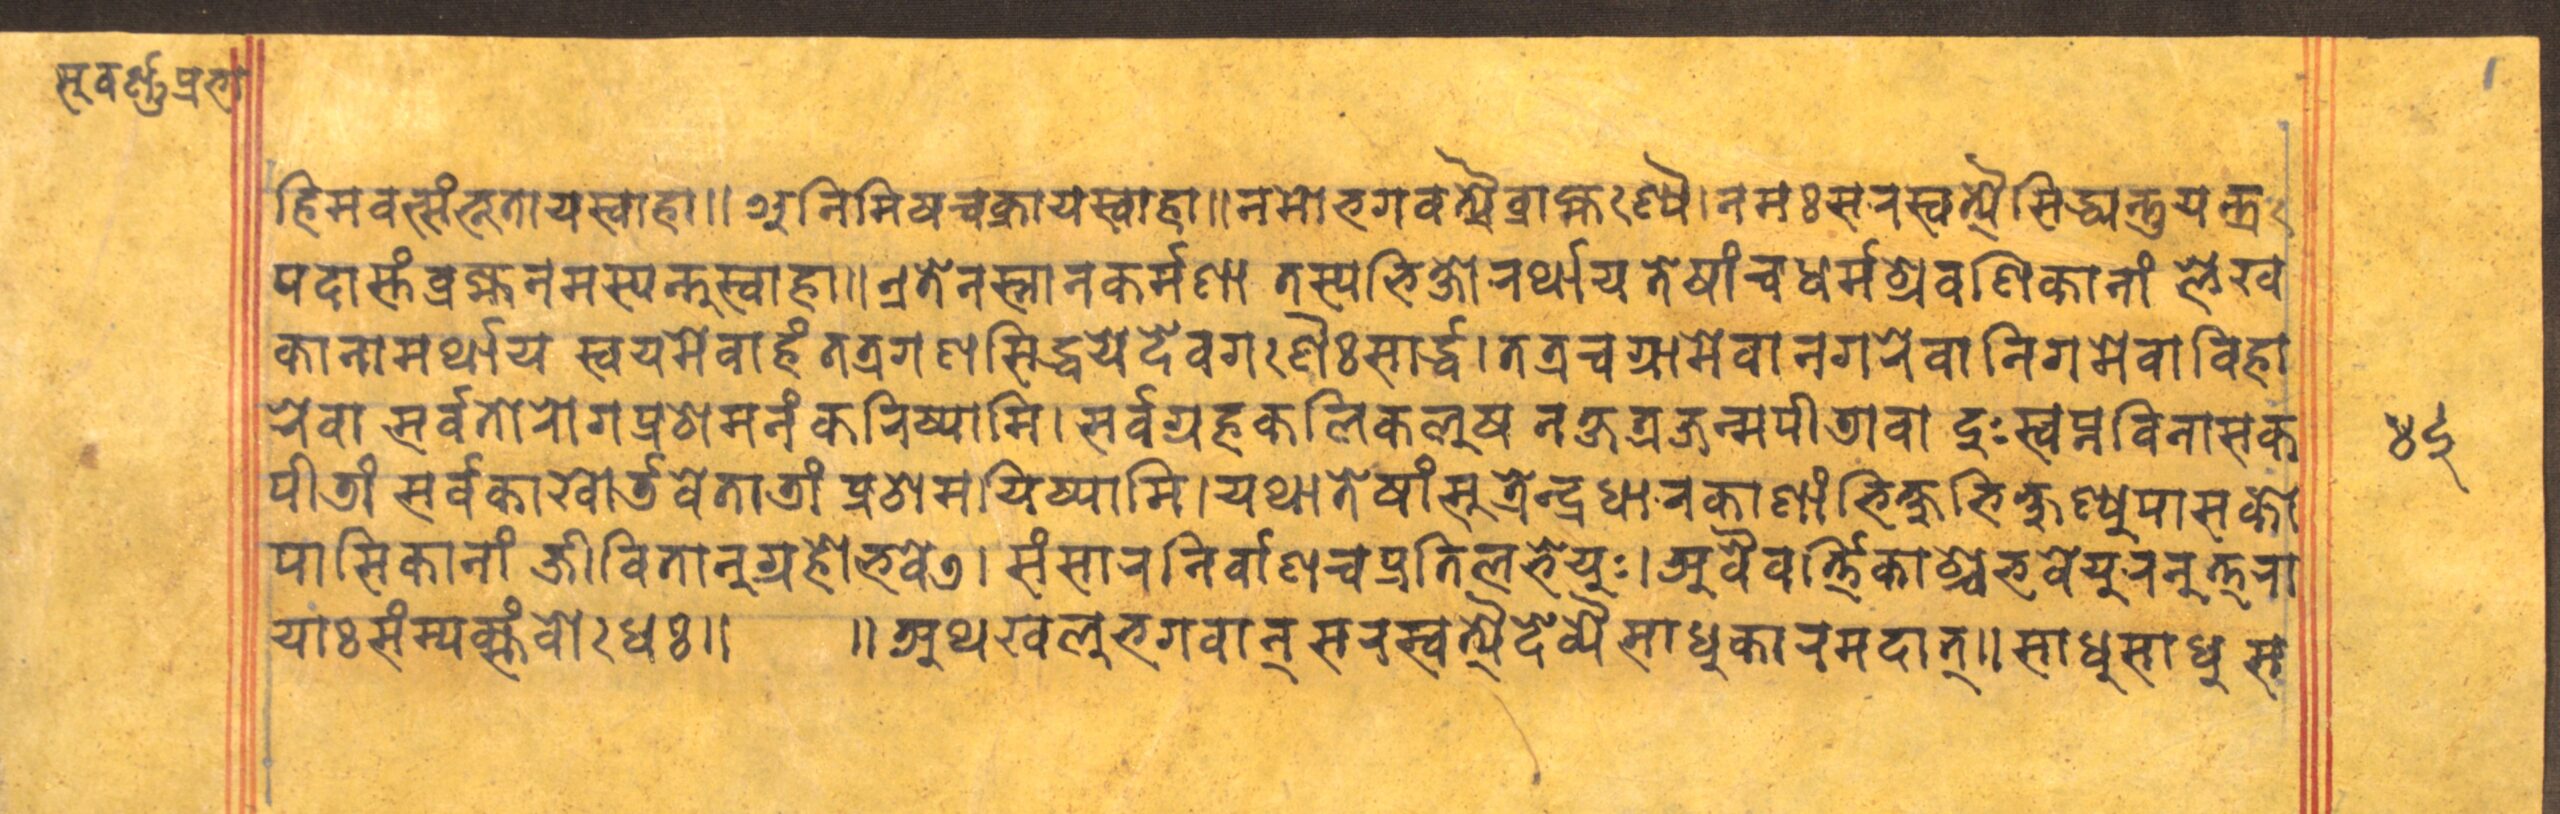 सुवर्ण्णप्रभा
हिमवत्संभूताय स्वाहा॥ अनिमिषचक्राय स्वाहा॥ नमो भगवत्यै ब्राह्मण्यै। नमः सरस्वत्यै सिद्ध्यन्तु यन्त्र
पदास्तं ब्रह्म नमस्यन्तु स्वाहा॥ एतेन स्नानकर्मणा तस्य भिक्षोरर्थाय तेषां च धर्मश्रवणिकानां लेख
कानामर्थाय स्वयमेवाहं तत्र गणसिद्धये देवगणैः सार्द्ध। तत्र च ग्रामे वा नगरे वा निगमे वा विहा
रे वा सर्वतो रोगप्रशमनं करिष्यामि। सर्वग्रहकलिकलुष नक्षत्रजन्मपीडा वा दुःस्वप्नविनासक
पीडां सर्वकाखोर्तवेताडां प्रशमयिष्यामि। यथा तेषां सुत्रेन्द्रधारकाणां भिक्षुभिक्षुण्युपासको
पासिकानां जीवितानुग्रहो भवेत्। संसारनिर्वाणञ्च प्रतिलभेयुः। अवैवर्त्तिकाश्च भवेयुरनुत्तरा
याः संम्यक्संबोधः॥ ॥ अथ खलु भगवान् सरस्वत्यै देव्यै साधुकारमदात्॥ साधु साधु स
४६